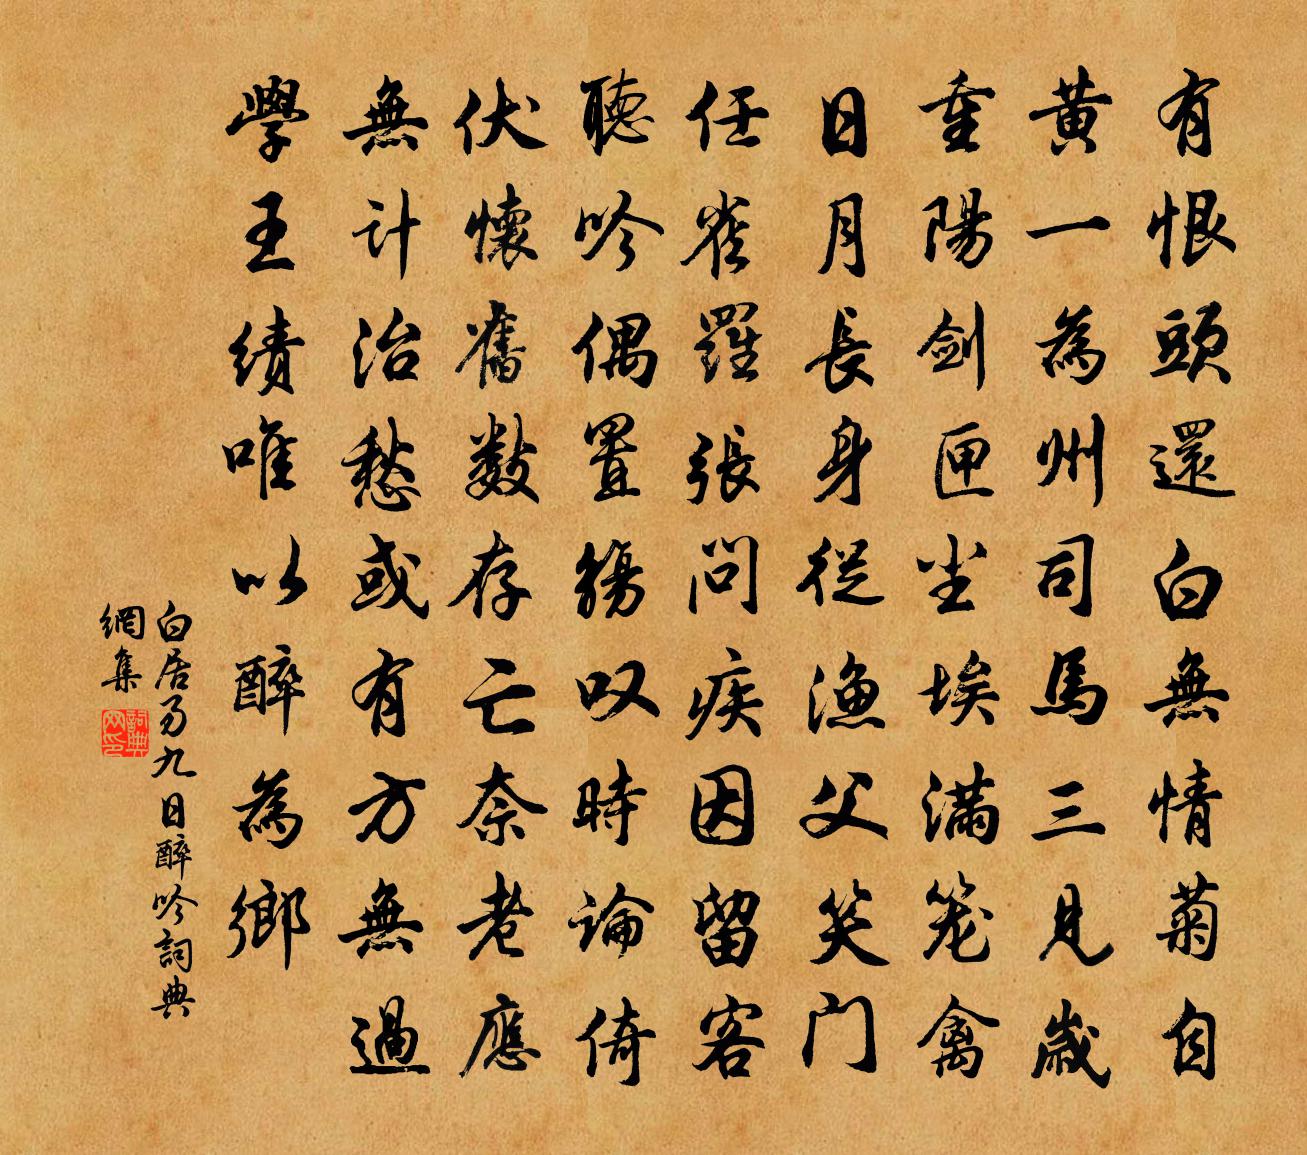 有恨頭還白無情菊自
黄一為州司馬三見歲
重陽剑匣尘埃满笼禽
日月長身從渔父笑门
任雀羅張问疾因留客
聽吟偶置觴叹時論倚
伏懷舊数存亡奈老應
無计治愁或有方無過
學王績唯以醉為鄉
白居易九日醉吟詞典
網集
詞典
网印